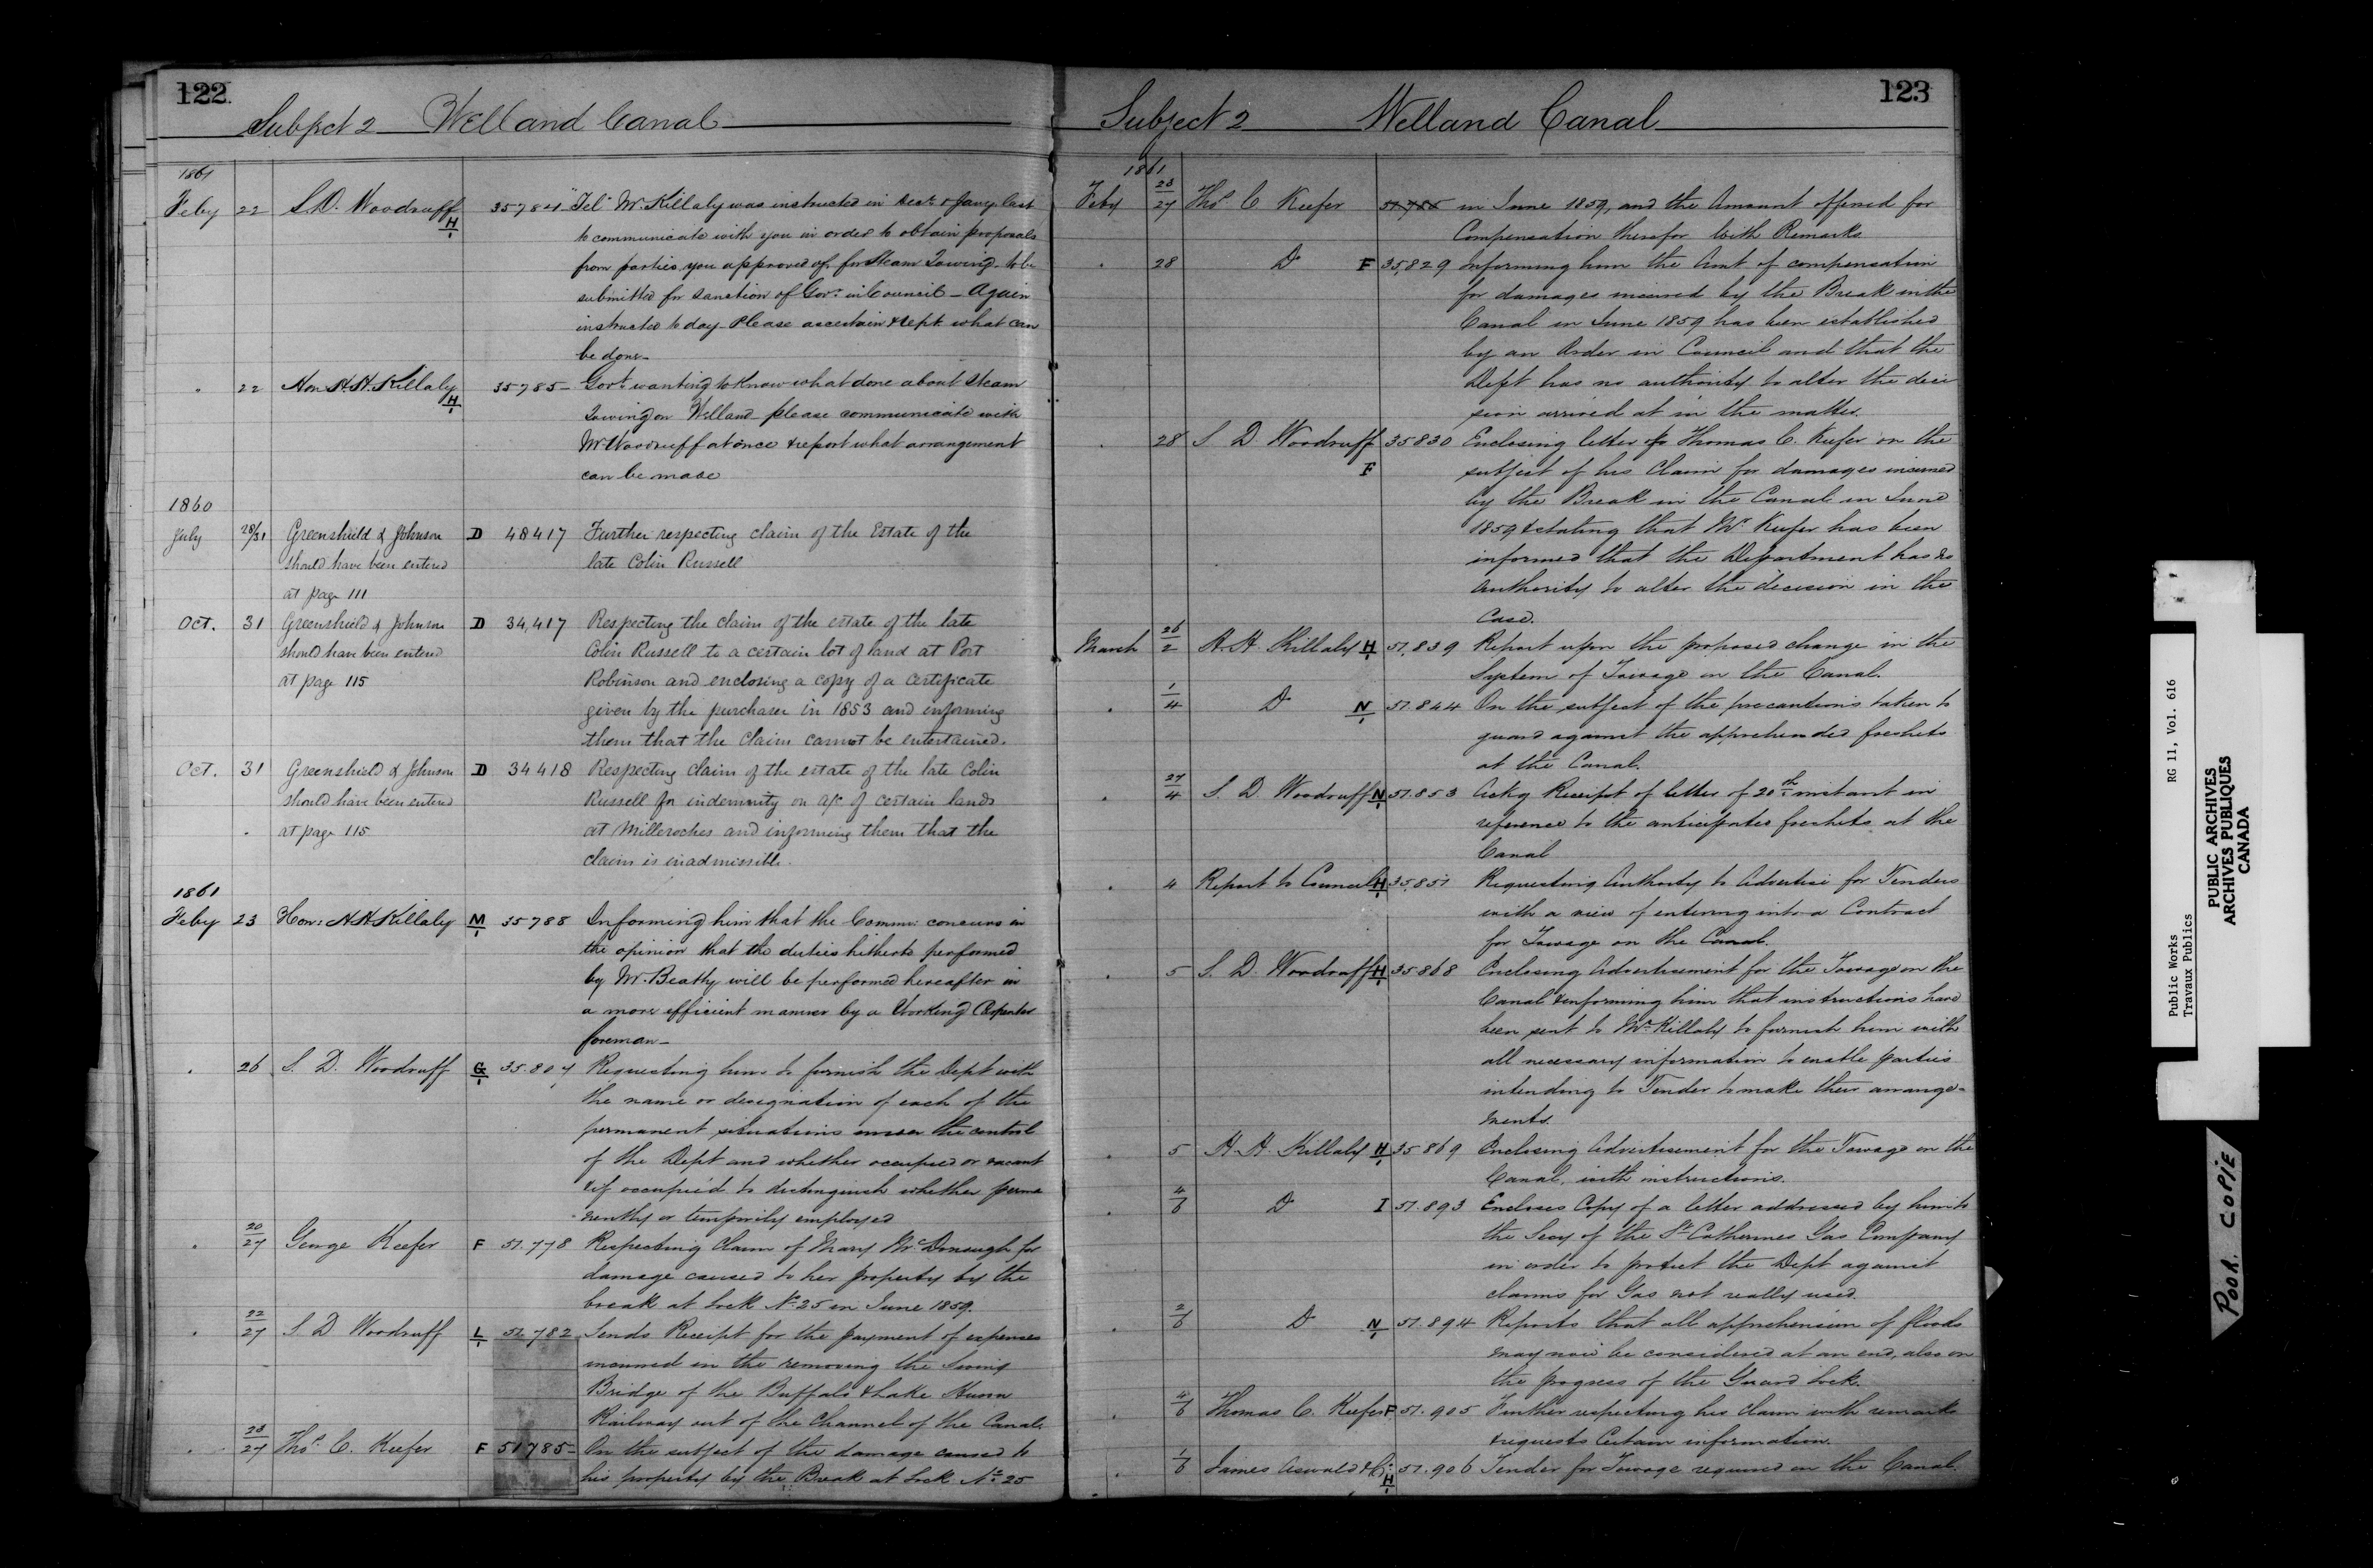 122
Subject 2 Welland Canal
1861
Feby 22 S. D. Woodruff H 35784 "Tel. Mr. Killaly was instructed in Decr. & Jany last
to communicate with you in order to obtain proposals
from parties you approved of, for Steam Towing to be
submitted for sanction of Govr. in Council - Again
instructed to day - Please ascertain & rept. what can
be done -
" 22 Hon H. H. Killaly H 35785 - Govt. wanting to know what done about Steam
Towing on Welland please communicate with
Mr Woodruff at once & report what arrangement
can be made
1860
July 28/31 Greenshield & Johnson D 48417 Further respecting claim of the Estate of the
should have been entered late Colin Russell
at page 111
Oct. 31 Greenshield & Johnson D 34,417 Respecting the claim of the estate of the late
should have been entered Colin Russell to a certain lot of land at Port
at page 115 Robinson and enclosing a copy of a certificate
given by the purchaser in 1853 and informing
them that the claim cannot be entertained.
Oct. 31 Greenshield & Johnson D 34418 Respecting claim of the estate of the late Colin
should have been entered Russell for indemnity on a/c of certain lands
at page 115 at Milleroches and informing them that the
claim is inadmissible.
1861
Feby 23 Hon: H H Killaly M 35788 Informing him that the Commr. concurs in
the opinion that the duties hitherto performed
by Mr. Beatty will be performed hereafter in
a more efficient manner by a Working Carpenter
foreman -
" 26 S. D. Woodruff G 35.804 Requesting him to furnish the Dept with
the name or designation of each of the
permanent situations under the control
of the Dept and whether occupied or vacant
& if occupied to distinguish whether perma
nently or temporily employed
" 20/27 George Keefer F 51.778 Respecting claim of Mary McDonough for
damage caused to her property by the
break at Lock No 25 in June 1859.
" 22/27 S D Woodruff L 51.782 Sends Receipt for the payment of expenses
incurred in the removing the Swing
Bridge of the Buffalo & Lake Huron
Railway out of the Channel of the Canal.
" 23/27 Thos. C. Keefer F 51785 - On the subject of the damage caused to
his property by the Break at Lock No 25
123
Subject 2 Welland Canal
1861
Feby 23/27 Thos C Keefer 51,785 in June 1859, and the Amount offered for
Compensation therefor With Remarks.
" 28 Do F 35,829 Informing him the Amt of compensation
for damages incurred by the Break in the
Canal in June 1859 has been established
by an Order in Council and that the
Dept has no authority to alter the deci
sion arrived at in the matter.
" 28 S. D Woodruff F 35830 Enclosing letter of Thomas C. Keefer on the
subject of his Claim for damages incurred
by the Break in the Canal in June
1859 & stating that Mr Keefer has been
informed that the Department has no
authority to alter the decision in the
Case.
March 26/2 H. H. Killaly H 51,839 Report upon the proposed change in the
System of Towage on the Canal.
" 1/4 Do N 51.844 On the subject of the precautions taken to
guard against the apprehended freshets
at the Canal.
" 27/4 S. D Woodruff N 51.853 Ackg Receipt of letter of 20th instant in
reference to the anticipated freshets at the
Canal
" 4 Report to Council H 35,851 Requesting Authority to Advertise for Tenders
with a view of entering into a Contract
for Towage on the Canal.
" 5 S. D. Woodruff H 35868 Enclosing Advertisement for the Towage on the
Canal & informing him that instructions have
been sent to Mr Killaly to furnish him with
all necessary information to enable parties
intending to Tender to make their arrange-
ments.
" 5 H. H. Killaly H 35869 Enclosing Advertisement for the Towage on the
Canal, with instructions.
" 4/6 Do I 51.893 Encloses Copy of a letter addressed by him to
the Secy of the St Catherines Gas Company
in order to protect the Dept against
claims for Gas not really used.
" 2/6 Do N 51.894 Reports that all apprehension of floods
may now be considered at an end, also on
the progress of the Guard Lock.
" 4/6 Thomas C. Keefer F 51.905 Further respecting his claim with remarks
& requests Certain information.
" 1/6 James Oswald & Co H 51.906 Tender for Towage required on the Canal.
Public Works RG 11, Vol. 616
Travaux Publics
PUBLIC ARCHIVES
ARCHIVES PUBLIQUES
CANADA
POOR COPIE